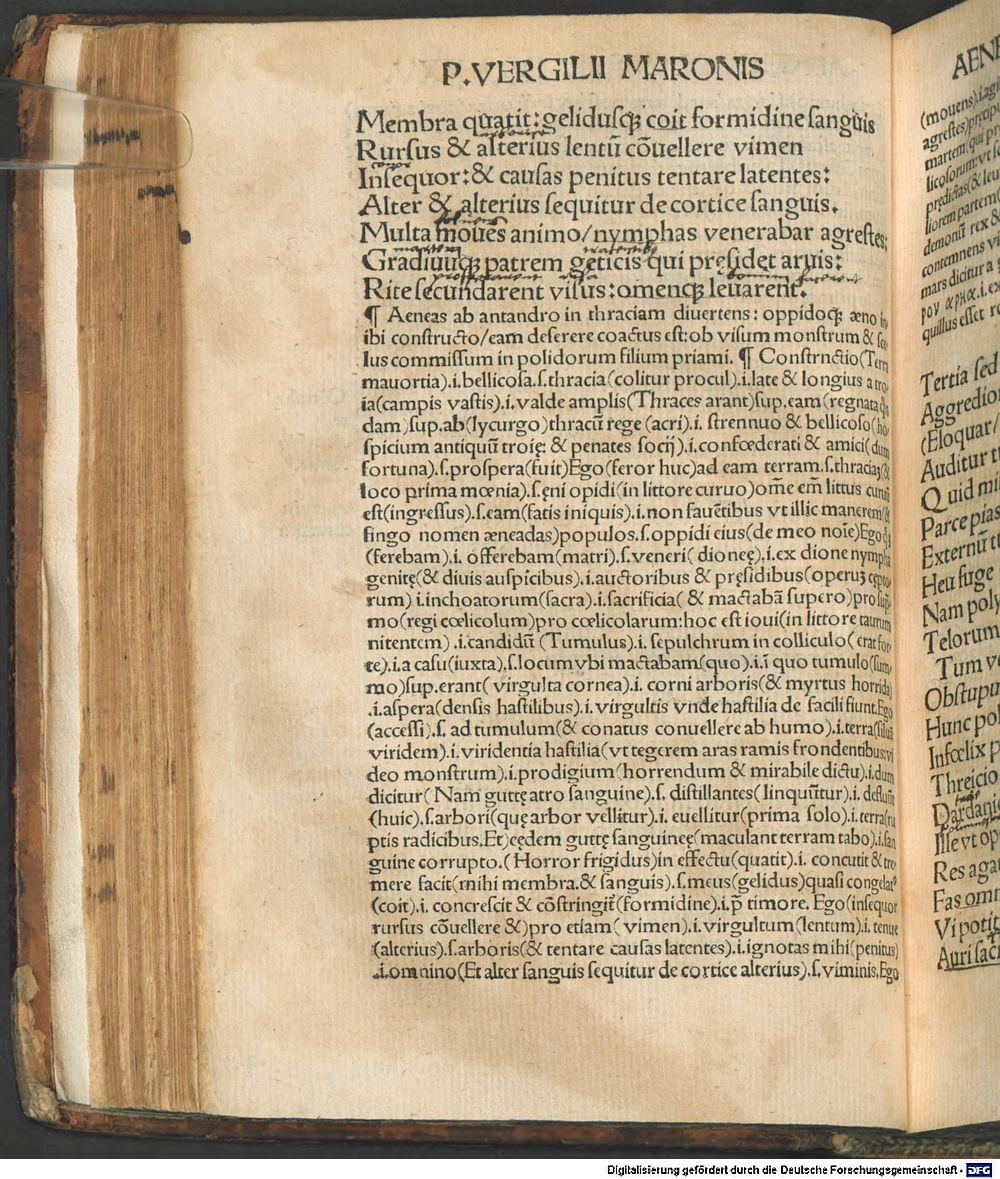 P.VERGILII MARONIS
Membra quatit: gelidusqꝫ coit formidine sanguis
Rursus & alterius lentũ cõuellere vimen
Insequor: & causas penitus tentare latentes:
Alter & alterius sequitur de cortice sanguis.
Multa moues animo/nymphas venerabar agrestes:
Gradiuuqꝫ patrem geticis qui pręsidet aruis:
Rite secundarent visus: omenqꝫ leuarent.
¶ Aeneas ab antandro in thraciam diuertens: oppidoqꝫ æno
ibi constructo/eam deserere coactus est: ob visum monstrum &
lus commissum in polidorum filium priami. ¶ Constrnctio(Terra
mauortia).i.bellicosa.s.thracia(colitur procul).i.late & longius a tro
ia(campis vastis).i.valde amplis(Thraces arant)sup.eam(regnata
dam)sup.ab(lycurgo)thracũ rege (acri).i. strennuo & bellicoso(ho
spicium antiquũ troię: & penates socij).i.confœderati & amici(dum
fortuna).s.prospera(fuit)Ego(feror huc)ad eam terram.s.thraciaꝫ(&
loco prima mœnia).s.ęni opidi(in littore curuo)om̃e em̃ littus curuũ
est(ingressus).s.eam(fatis iniquis).i.non fauẽtibus vt illic manerem(&
fingo nomen æneadas)populos.s.oppidi eius(de meo nõie)Ego
(ferebam).i. offerebam(matri).s.veneri( dioneę).i.ex dione nympha
genitę(& diuis auspicibus).i.auctoribus & pręsidibus(operuꝫ cępto
rum) i.inchoatorum(sacra).i.sacrificia( & mactabã supero)pro sup̃
mo(regi cœlicolum)pro cœlicolarum:hoc est ioui(in littore taurum
nitentem) .i.candidũ (Tumulus).i. sepulchrum in colliculo( erat for
te).i.a casu(iuxta).s.locum vbi mactabam(quo).i.ĩ quo tumulo(sum
mo)sup.erant( virgulta cornea).i. corni arboris(& myrtus horrida)
.i.aspera(densis hastilibus).i.virgultis vnde hastilia de facili fiunt.Ego
(accessi).s. ad tumulum(& conatus conuellere ab humo).i.terra(siluã
viridem).i.viridentia hastilia(vt tegerem aras ramis frondentibus:vi
deo monstrum).i.prodigium(horrendum & mirabile dictu).i.dum
dicitur( Nam guttę atro sanguine).s. distillantes(linquũtur).i. defluũt
(huic).s.arbori(quę arbor vellitur).i. euellitur(prima solo).i.terra(ru
ptis radicibus.Et)eędem guttę sanguineę(maculant terram tabo).i.san
guine corrupto.(Horror frigidus)in effectu(quatit).i. concutit & tre
mere facit(mihi membra.& sanguis).s.meus(gelidus)quasi congelat⁹
(coit).i. concrescit & cõstringit̃(formidine).i.p̃ timore. Ego(insequor
rursus cõuellere &)pro etiam( vimen).i. virgultum(lentum).i. tenue
(alterius).s.arboris(& tentare causas latentes).i.ignotas mihi(penitus)
.i.omnino(Et alter sanguis sequitur de cortice alterius).s.viminis.Ego
AENE
(mouens).i.
agrestes)
martem(qui
licosorum:
prędictas(&
liorem partem(
demonũ rex &
contemnens
mars dicitur a
quillus esset
Tertia sed
Aggredior
(Eloquar/
Auditur
Quid
Parce pias
Externũ
Heu fuge
Nam poly
Telorum
Tum
Obstupui
Hunc pol
Infœlix
Threicio
Dardani
Ille vt op
Res agat
Fas omn
Vi potit
Auri sac
Digitalisierung gefördert durch die Deutsche Forschungsgemeinschaft - DFG